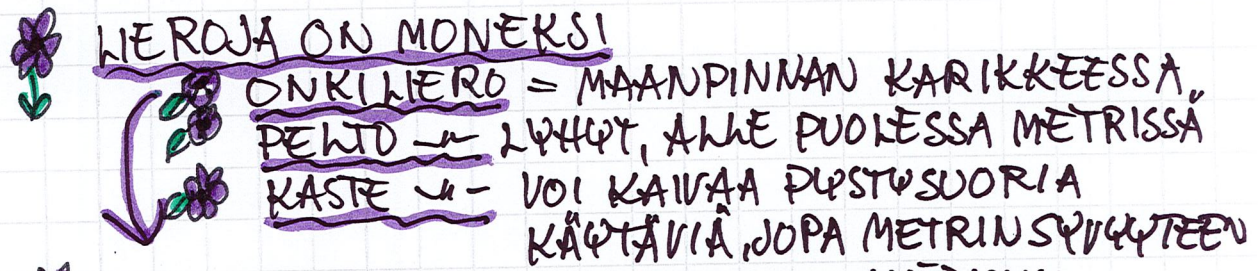 LIEROJA ON MONEKSI
ONKILIERO = MAANPINNAN KARIKKEESSA
PELTO -"- LYHYT, ALLE PUOLESSA METRISSÄ
KASTE -"- VOI KAIVAA PYSTYSUORIA
KÄYTÄVIÄ, JOPA METRIN SYVYYTEEN